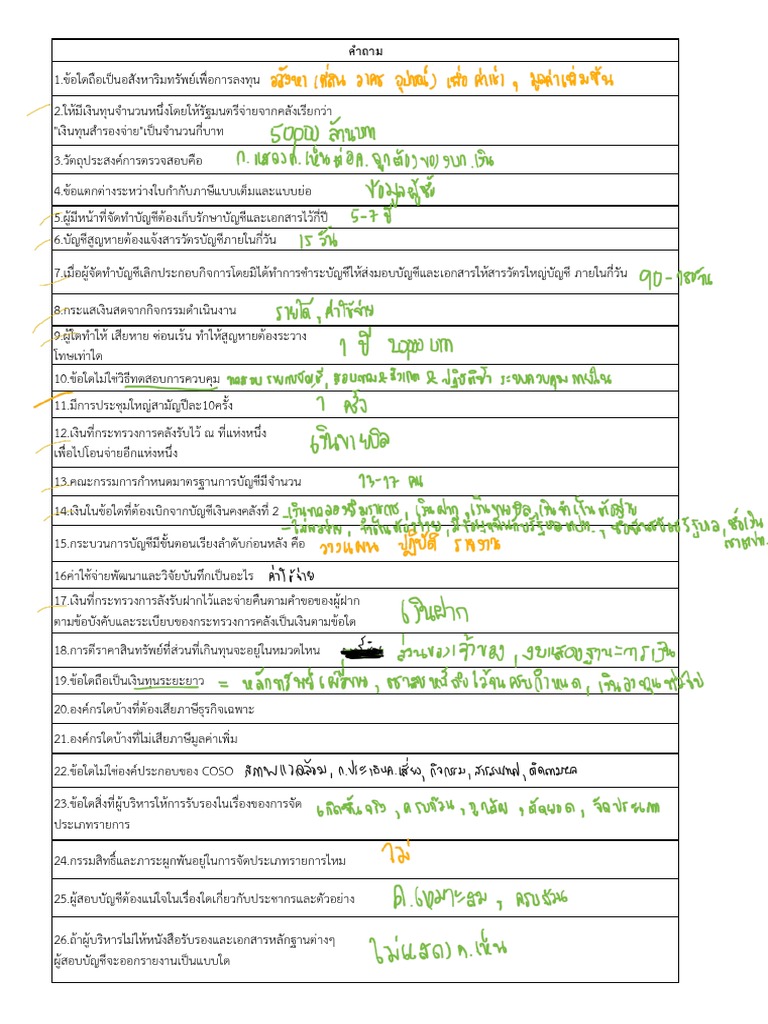 คำถาม
1.ข้อใดถือเป็นอสังหาริมทรัพย์เพื่อการลงทุน อสังหา (ที่ดิน อาคาร อุปกรณ์) เพื่อ ค่าเช่า , มูลค่าเพิ่มขึ้น
2.ให้มีเงินทุนจำนวนหนึ่งโดยให้รัฐมนตรีจ่ายจากคลังเรียกว่า
"เงินทุนสำรองจ่าย"เป็นจำนวนกี่บาท 50000 ล้านบาท
3.วัตถุประสงค์การตรวจสอบคือ ก. แสดงค.เห็นต่อค.ถูกต้องของงบก.เงิน
4.ข้อแตกต่างระหว่างใบกำกับภาษีแบบเต็มและแบบย่อ ข้อมูลผู้ซื้อ
5.ผู้มีหน้าที่จัดทำบัญชีต้องเก็บรักษาบัญชีและเอกสารไว้กี่ปี 5-7 ปี
6.บัญชีสูญหายต้องแจ้งสารวัตรบัญชีภายในกี่วัน 15 วัน
7.เมื่อผู้จัดทำบัญชีเลิกประกอบกิจการโดยมิได้ทำการชำระบัญชีให้ส่งมอบบัญชีและเอกสารให้สารวัตรใหญ่บัญชี ภายในกี่วัน 90-180วัน
8.กระแสเงินสดจากกิจกรรมดำเนินงาน รายได้, ค่าใช้จ่าย
9.ผู้ใดทำให้ เสียหาย ซ่อนเร้น ทำให้สูญหายต้องระวาง
โทษเท่าใด 1 ปี 20000 บาท
10.ข้อใดไม่ใช่วิธีทดสอบการควบคุม ทดสอบ
11.มีการประชุมใหญ่สามัญปีละ10ครั้ง 1 ครั้ง
12.เงินที่กระทรวงการคลังรับไว้ ณ ที่แห่งหนึ่ง
เพื่อไปโอนจ่ายอีกแห่งหนึ่ง เงินขายบิล
13.คณะกรรมการกำหนดมาตรฐานการบัญชีมีจำนวน 13-17 คน
14.เงินในข้อใดที่ต้องเบิกจากบัญชีเงินคงคลังที่ 2 เงินทดลองราชการ, เงินฝาก, เงินขายบิล,
15.กระบวนการบัญชีมีขั้นตอนเรียงลำดับก่อนหลัง คือ วางแผน ปฏิบัติ รายงาน
16ค่าใช้จ่ายพัฒนาและวิจัยบันทึกเป็นอะไร ค่าใช้จ่าย
17.เงินที่กระทรวงการลังรับฝากไว้และจ่ายคืนตามคำขอของผู้ฝาก
ตามข้อบังคับและระเบียบของกระทรวงการคลังเป็นเงินตามข้อใด เงินฝาก
18.การตีราคาสินทรัพย์ที่ส่วนที่เกินทุนจะอยู่ในหมวดไหน ส่วนของเจ้าของ, งบแสดงฐานะการเงิน
19.ข้อใดถือเป็นเงินทุนระยะยาว = หลักทรัพย์เผื่อขาย, ตราสารหนี้ถือไว้จนครบกำหนด, เงินลงทุนทั่วไป
20.องค์กรใดบ้างที่ต้องเสียภาษีธุรกิจเฉพาะ
21.องค์กรใดบ้างที่ไม่เสียภาษีมูลค่าเพิ่ม
22.ข้อใดไม่ใช่องค์ประกอบของ COSO สภาพแวดล้อม, ก.ประเมินค.เสี่ยง, กิจกรรม, สารสนเทศ, ติดตามผล
23.ข้อใดสิ่งที่ผู้บริหารให้การรับรองในเรื่องของการจัด
ประเภทรายการ เกิดขึ้นจริง, ครบถ้วน, ถูกต้อง, ตัดยอด, จัดประเภท
24.กรรมสิทธิ์และภาระผูกพันอยู่ในการจัดประเภทรายการไหม ไม่
25.ผู้สอบบัญชีต้องแน่ใจในเรื่องใดเกี่ยวกับประชากรและตัวอย่าง ค.เหมาะสม, ครบถ้วน
26.ถ้าผู้บริหารไม่ให้หนังสือรับรองและเอกสารหลักฐานต่างๆ
ผู้สอบบัญชีจะออกรายงานเป็นแบบใด ไม่แสดง ค.เห็น